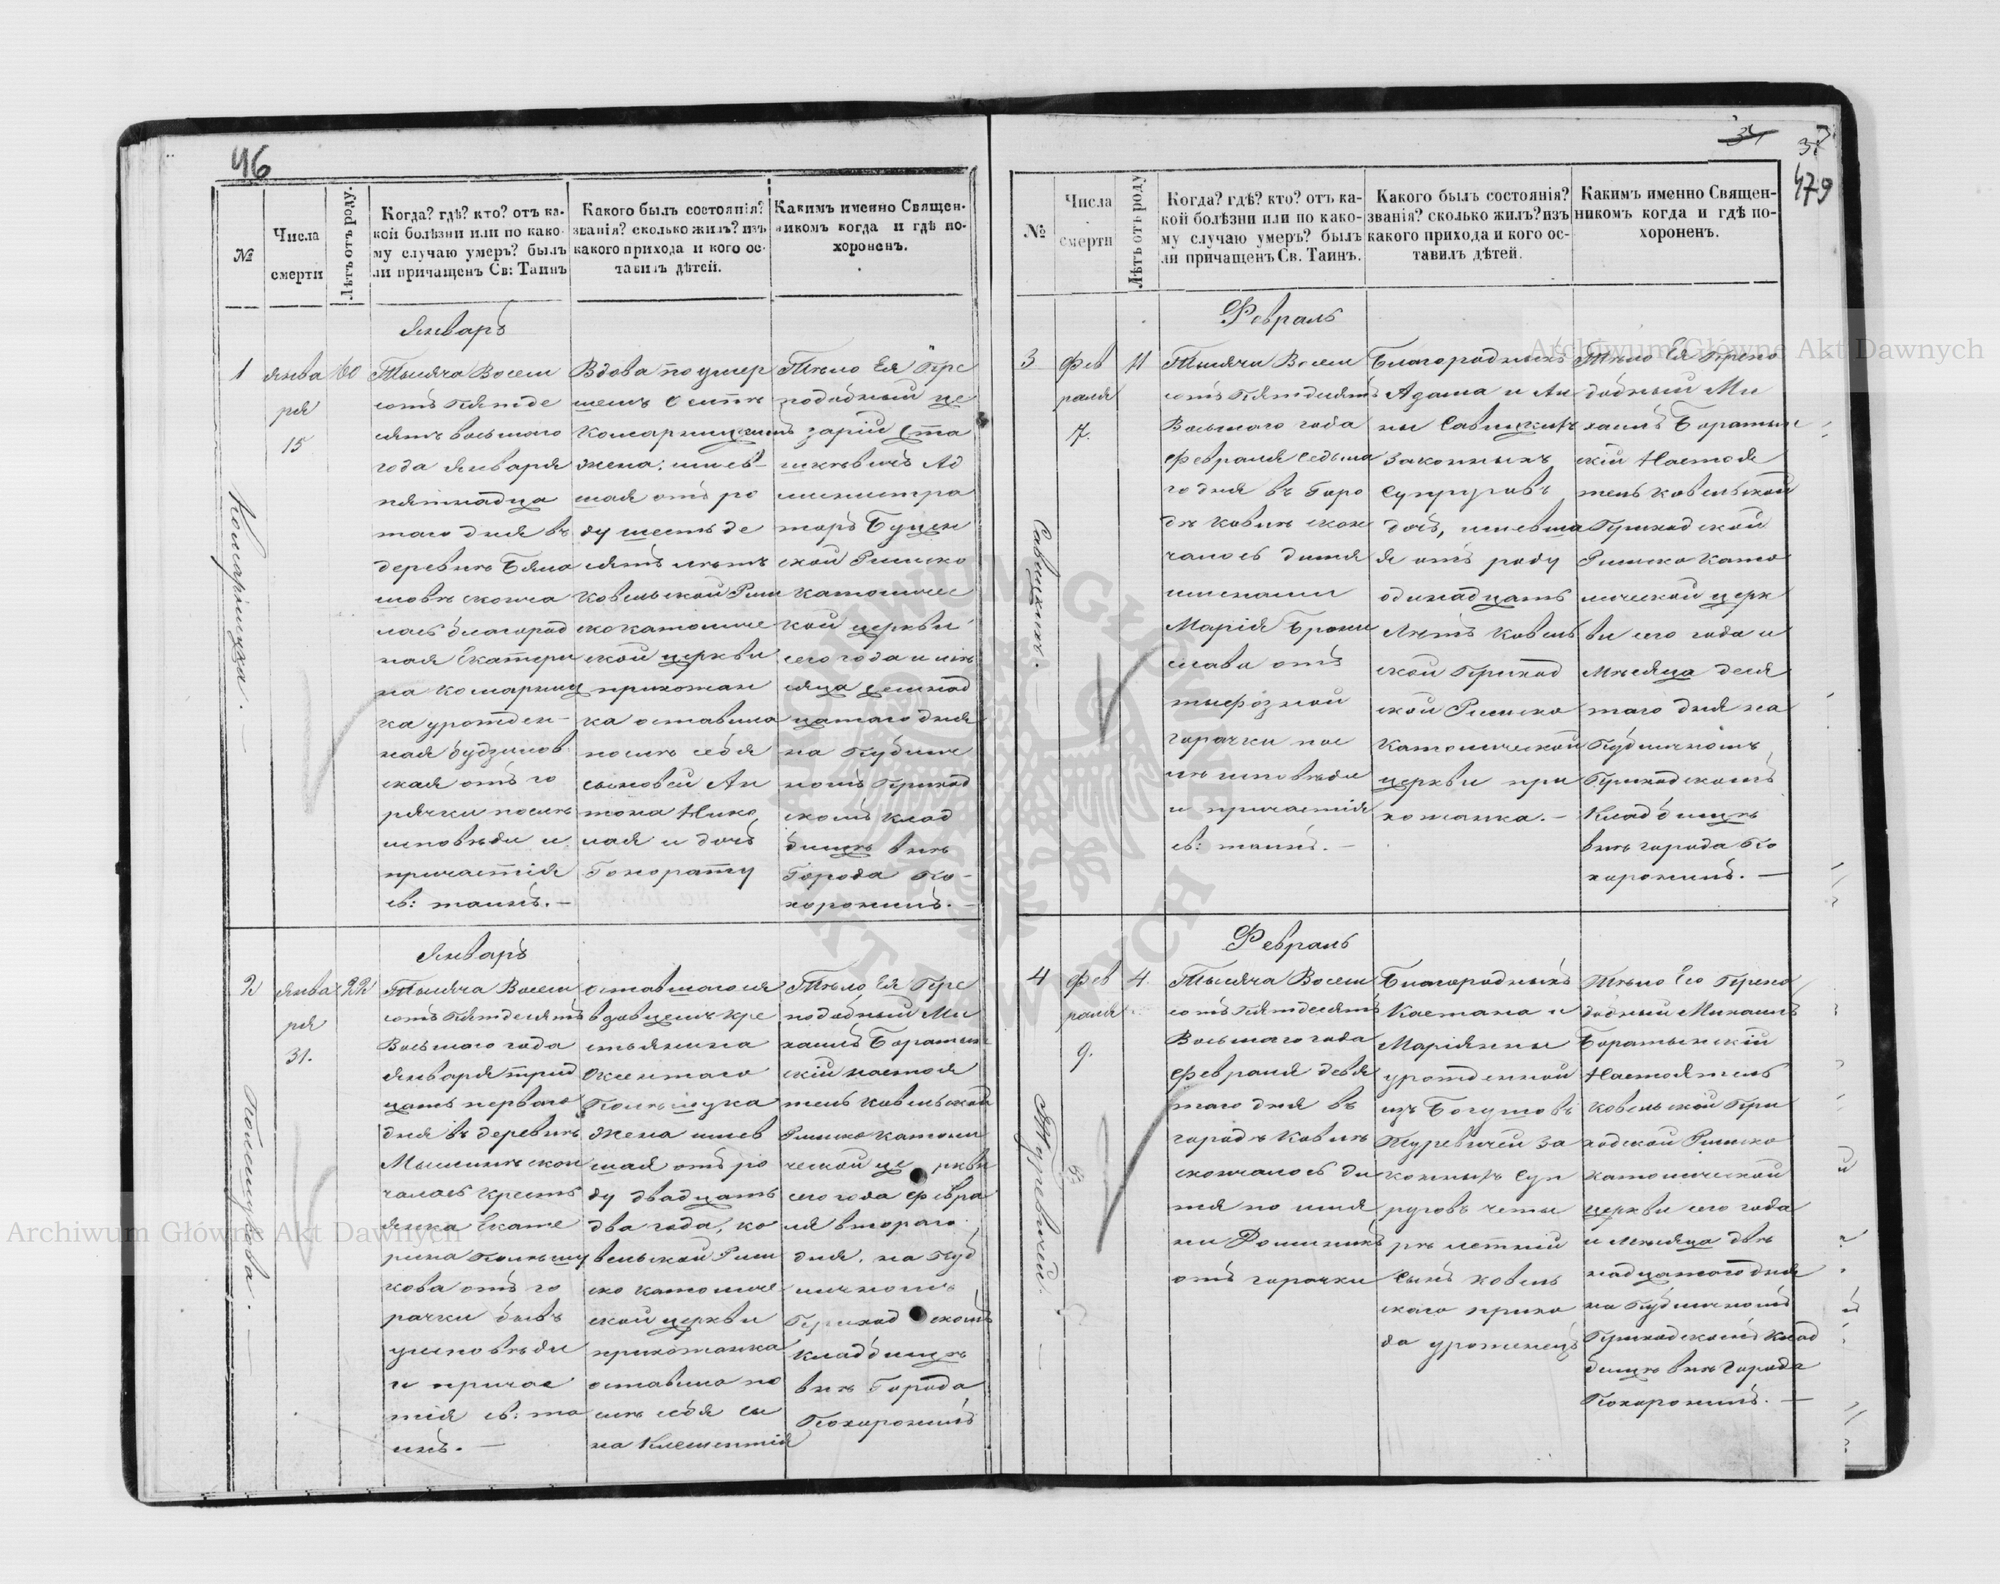 46
№
Числа
смерти
Лѣтъ отъ роду.
Когда? гдѣ? кто? отъ ка-
кой болѣзни или по како-
му случаю умеръ? былъ
ли причащенъ Св: Таинъ
Какого былъ состоянія?
званія? сколько жилъ? изъ
какого прихода и кого ос-
тавилъ дѣтей.
Какимъ именно Священ-
никомъ когда и гдѣ по-
хороненъ.
Январь
1
янва
ря
15
60
Комарницка. —
Тысяча Восем
сотъ Пятде
сятъ восьмого
года Января
пятнадца
таго дня въ
деревнѣ Бяла
шовъ сконча
лась благород
ная Екатери
на Комарниц
ка урожден-
ная Будзинов
ская отъ го
рячки послѣ
исповѣди и
причастія
св: таинъ. —
Вдова по умер
шемъ
Комарницкимъ
жена, имев-
шая отъ ро
ду шестьде
сятъ лѣтъ
Ковельской Рим
скокатоличе
ской церкви
прихожан
ка оставила
послѣ себя
сыновей Ан
тона Нико
лая и дочь
Гонорату
Тѣло Ея Пре
подобный це
зарій Ста
шкѣвичъ Ад
министра
торъ Буцен
ской Римско
католичес
кой церкви
сего года и мѣ
сяца семнад
цатого дня
на Публич
номъ Приход
скомъ Клад
бищѣ внѣ
Города По-
хоронилъ. —
Январь
2
янва
ря
31.
22
Полищукова. —
Тысяча Восем
сотъ Пятдесятъ
Восьмого года
Января трид
цать первого
дня въ деревнѣ
скон
чалась кресть
янка Екате
рина Полищу
кова отъ го
рячки бывъ
у исповѣди
и причас
тія св: та
инъ. —
Оставшогося
вдовцемъ Кре
стьянина
Полищука
жена имев
шая отъ ро
ду двадцать
два года, ко
вельской Рим
ско католиче
ской церкви
прихожанка
оставила по
слѣ себя сы
на Клементія
Тѣло Ея Пре
подобный Ми
хаилъ Боратын
скій настоя
тель Ковельской
Римско католи
ческой це ркви
сего года Февра
ля второго
дня, на Пуб
личномъ
Приход скомъ
Кладбищѣ
внѣ Города
Похоронилъ
37
479
№
Числа
смерти
Лѣтъ отъ роду
Когда? гдѣ? кто? отъ ка-
кой болѣзни или по како-
му случаю умеръ? былъ
ли причащенъ Св. Таинъ.
Какого былъ состоянія?
званія? сколько жилъ? изъ
какого прихода и кого ос-
тавилъ дѣтей.
Какимъ именно Священ-
никомъ когда и гдѣ по-
хороненъ.
Февраль
3
Фев
раля
7.
11
Савицкихъ. —
Тысяча Восем
сотъ Пятдесятъ
Восьмого года
Февраля седьма
го дня въ Горо
дѣ Ковлѣ скон
чалось дитя
именами
Марія Брони
слава отъ
тыфозной
горячки пос
лѣ исповѣди
и причастія
св: таинъ. —
Благородныхъ
Адама и Ан
ны Савицкихъ
Законныхъ
Супруговъ
дочь, имевша
я отъ роду
одинадцать
Лѣтъ Ковель
ской Приход
ской Римско
Католической
церкви при
хожанка. —
Тѣло Ея Препо
добный Ми
хаилъ Боратын
скій Настоя
тель Ковельской
Приходской
Римско Като
лической церк
ви сего года и
Мѣсяца деся
таго дня на
Публичномъ
Приходскомъ
Кладбищѣ
внѣ города По
хоронилъ. —
Февраль
4
Фев
раля
9.
4.
Журевичей. —
Тысяча Восем
сотъ Пятдесятъ
Восьмаго года
Февраля девя
таго дня въ
городѣ Ковлѣ
скончалось ди
тя по имя
ни Доминикъ
отъ горячки
Благородныхъ
Каетана и
Маріянны
урожденной
изъ Богушовъ
Журевичей за
конныхъ Суп
руговъ четы
рѣ летній
Сынъ Ковель
скаго прихо
да уроженецъ
Тѣло Его Препо
добный Михаилъ
Боратынскій
Настоятель
Ковельской При
ходской Римско
католической
церкви сего года
и Мѣсяца двѣ
надцатого дня
на Публичномъ
Приходскомъ Клад
бищѣ внѣ Города
Похоронилъ. —
Archiwum Główne Akt Dawnych
Archiwum Główne Akt Dawnych
ARCHIWUM GŁÓWNE AKT DAWNYCH